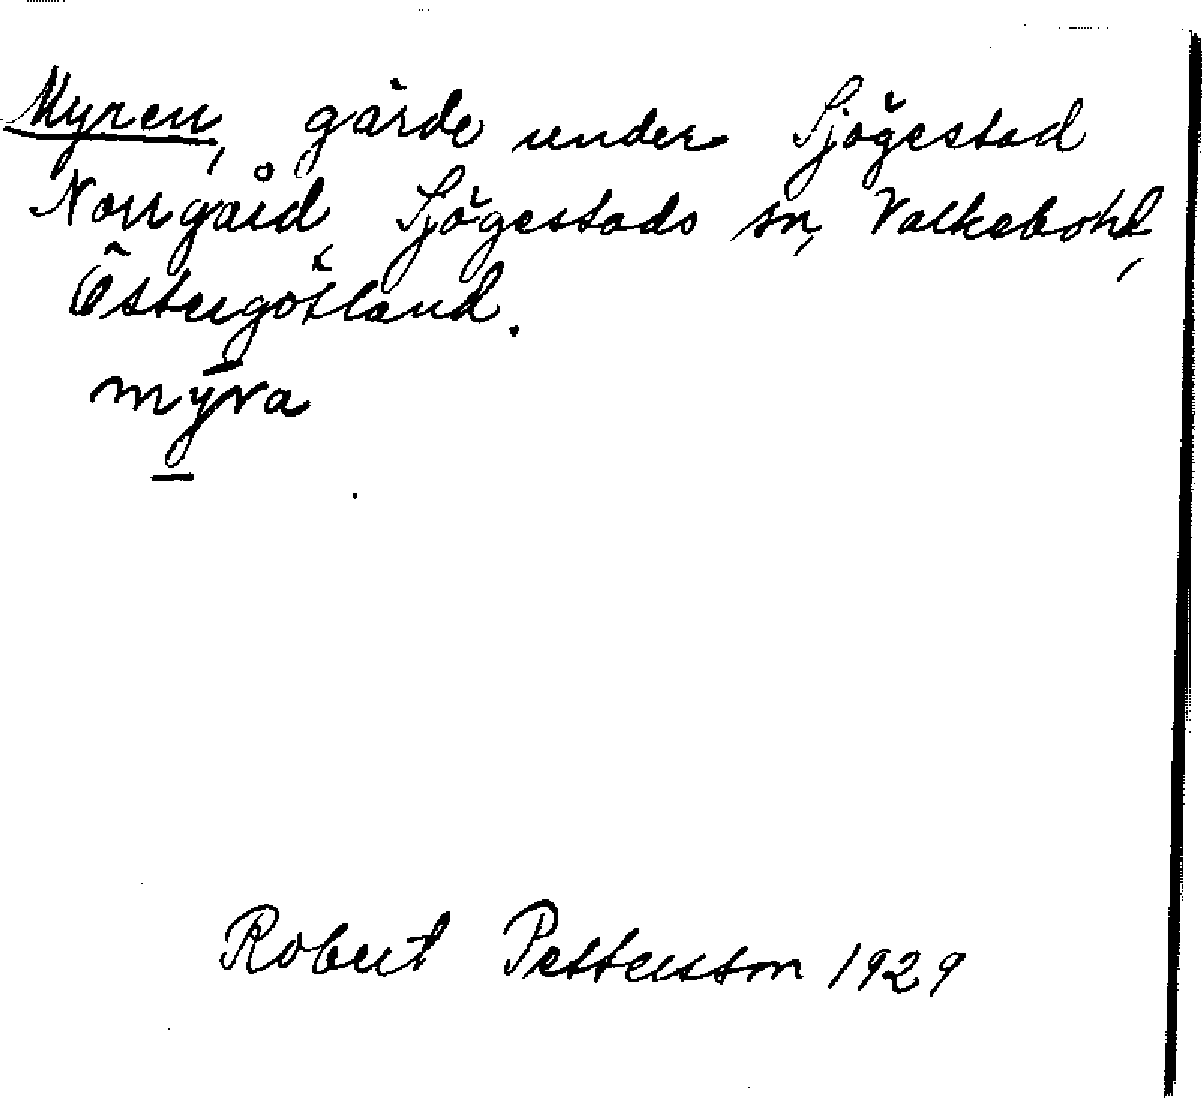 Myren, gärde under Sjögestad
Norrgård, Sjögestads sn, Valkebohd,
Östergötland.
mýra
Robert Pettersson 1929